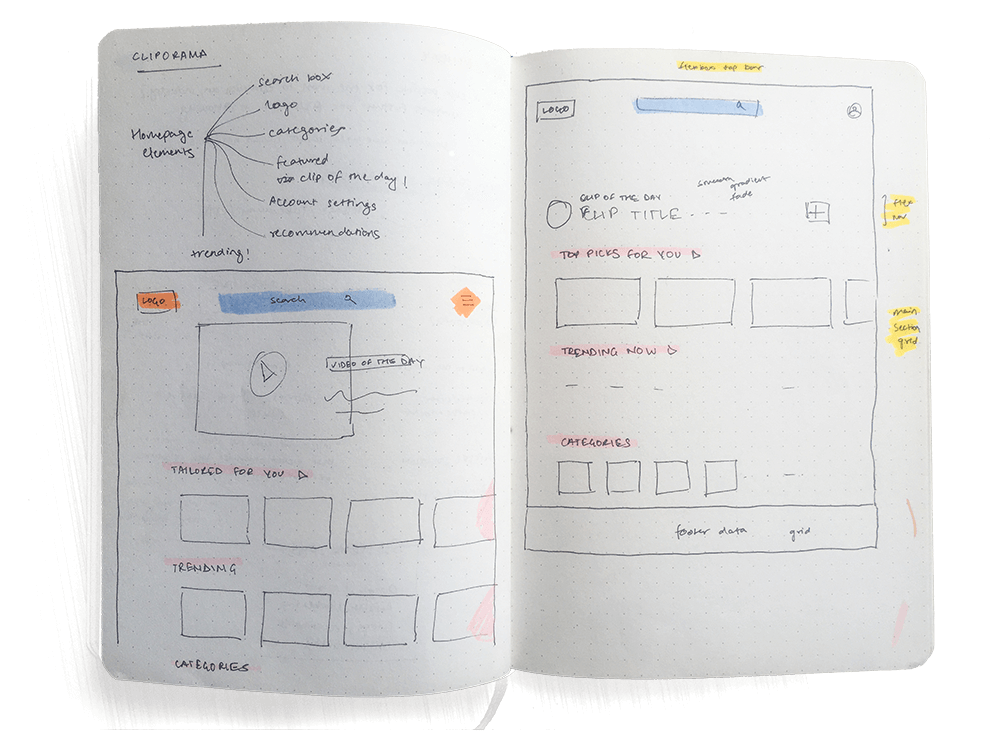 CLIPORAMA
search box
logo
Homepage
elements
categories
featured
clip of the day!
Account settings
recommendations
trending!
LOGO
search
VIDEO OF THE DAY
TAILORED FOR YOU
TRENDING
CATEGORIES
top bar
LOGO
CLIP OF THE DAY
smooth
gradient
fade
CLIP TITLE ---
flex
nav
TOP PICKS FOR YOU
main
section
grid
TRENDING NOW
CATEGORIES
footer data grid